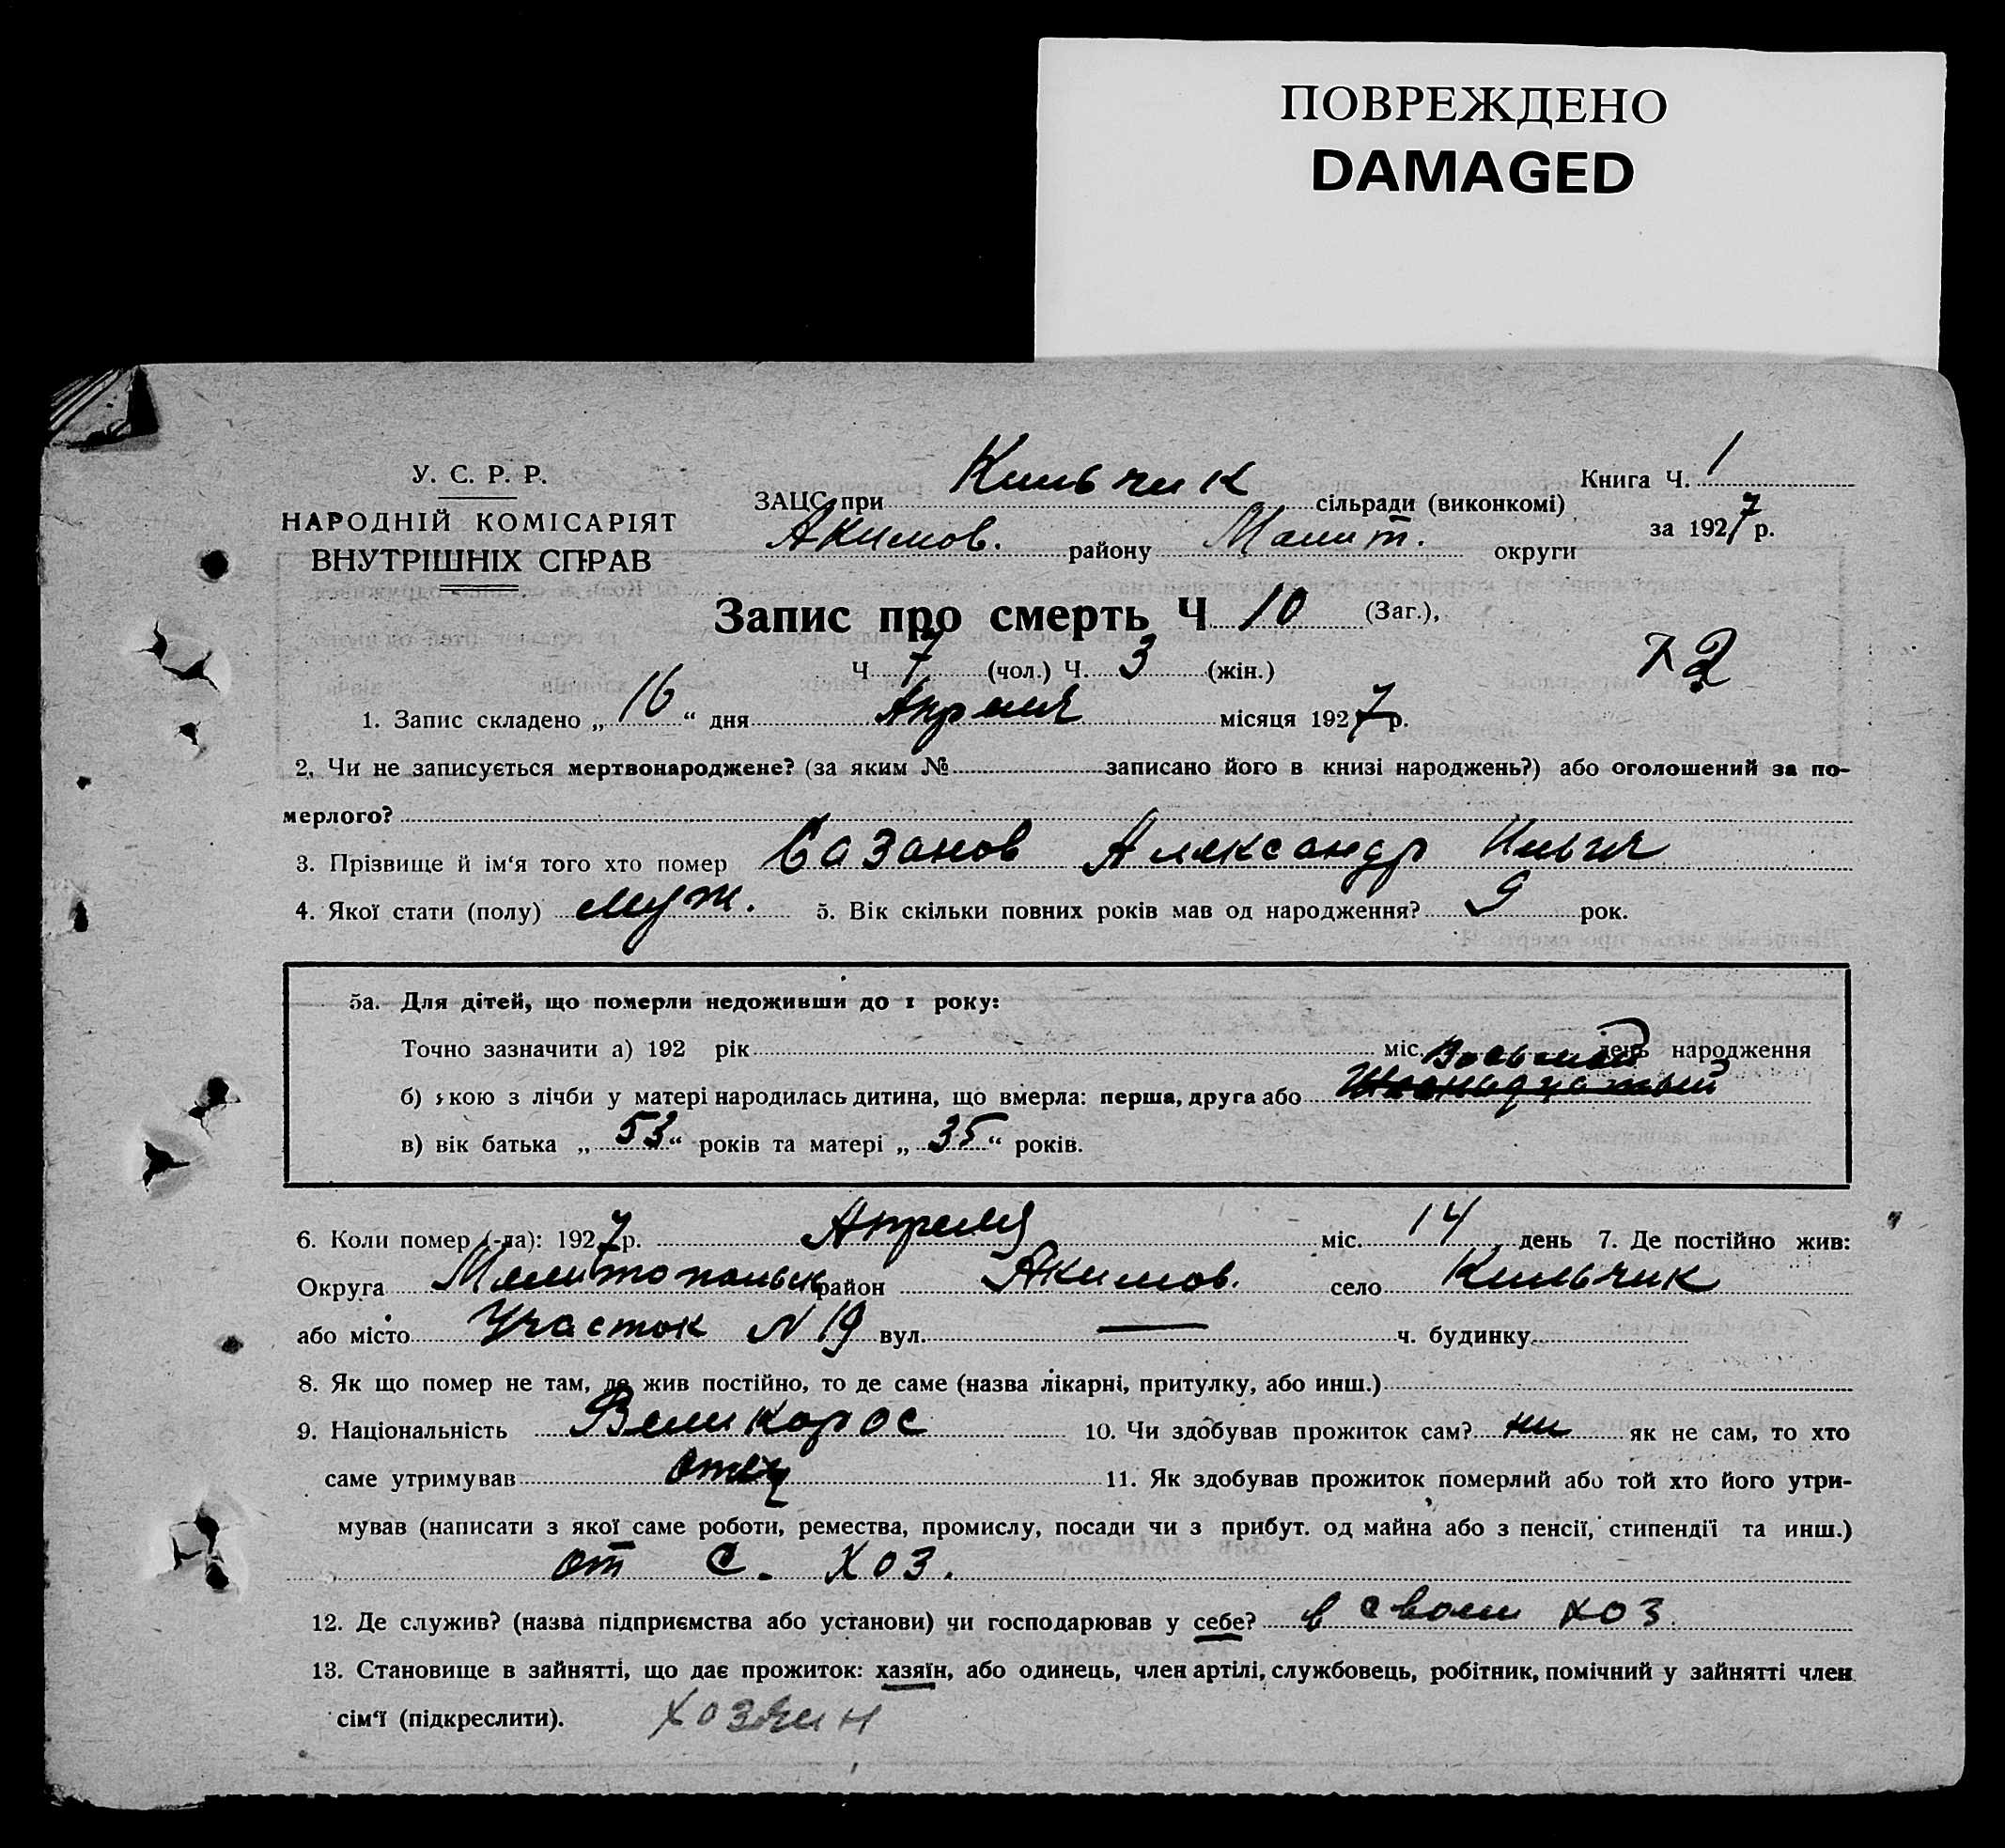 ПОВРЕЖДЕНО
DAMAGED
У. С. Р. Р.
НАРОДНІЙ КОМІСАРІЯТ
ВНУТРІШНІХ СПРАВ
ЗАЦС при Кильчик сільради (виконкомі)
Акимов. району Мелит. округи
Книга Ч. 1
за 1927 р.
Запис про смерть Ч 10 (Заг.),
Ч 7 (чол.) Ч. 3 (жін.)
72
1. Запис складено „ 16 “ дня Апреля місяця 1927 р.
2. Чи не записується мертвонароджене? (за яким № записано його в книзі народжень?) або оголошений за по-
мерлого?
3. Прізвище й ім‘я того хто помер Сазанов Александр Ильич
4. Якої стати (полу) муж. 5. Вік скільки повних років мав од народження? 9 рок.
5а. Для дітей, що померли недоживши до 1 року:
Точно зазначити а) 192 рік міс. день народження
Восьмой
б) якою з лічби у матері народилась дитина, що вмерла: перша, друга або
в) вік батька „ 53 “ років та матері „ 35 “ років.
6. Коли помер (-ла): 1927 р. Апреля міс. 14 день 7. Де постійно жив:
Округа Мелитопольск район Акимов. село Кильчик
або місто Участок N 19 вул. — ч. будинку
8. Як що помер не там, де жив постійно, то де саме (назва лікарні, притулку, або инш.)
9. Національність Великорос 10. Чи здобував прожиток сам? ни як не сам, то хто
саме утримував отец 11. Як здобував прожиток померлий або той хто його утри-
мував (написати з якої саме роботи, ремества, промислу, посади чи з прибут. од майна або з пенсії, стипендії та инш.)
от с. хоз.
12. Де служив? (назва підприємства або установи) чи господарював у себе? в своем хоз.
13. Становище в зайнятті, що дає прожиток: хазяїн, або одинець, член артілі, службовець, робітник, помічний у зайнятті член
сім‘ї (підкреслити). хозяин